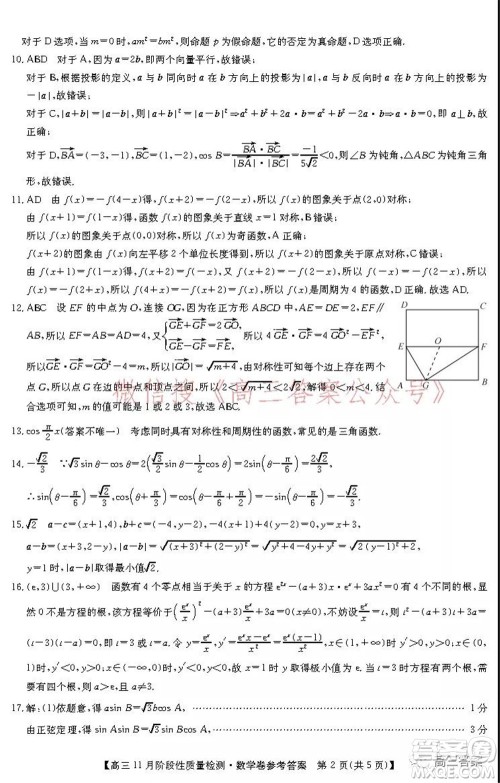 对于D选项,当m=0时,am²=bm²,则命题p为假命题,它的否定为真命题,D正确.
10. ABD 对于A,因为a=2b,即两个向量平行,故错误;
对于B,根据投影的定义,a与b同向时a在b方向上的投影为|a|,a与b反向时a在b方向上的投影为
-|a|,故错误;
对于C,|a+b|=|a-b|,则|a+b|²=|a-b|²⇒a²+b²+2a·b=a²+b²-2a·b⇒a·b=0,即a⊥b,故
正确;
对于D,BA=(-3,-1),BC=(1,-2),cos B=BA·BC/|BA||BC|=-1/5√2<0,则∠B为钝角,△ABC为钝角三角
形,故错误.
11. AD 由f(x)=-f(4-x)得,f(x+2)=-f(2-x),所以f(x)的图象关于点(2,0)对称;
由f(x+1)=f(1-x)得,函数f(x)的图象关于直线x=1对称,
所以f(x)的图象关于点(0,0)对称,所以f(x)为奇函数,A正确;
f(x+2)的图象由f(x)向左平移2个单位长度得到,所以f(x+2)的图象关于原点对称,C错误;
由f(x+1)=f(1-x)得,f(x+2)=f(-x),又f(x+2)=-f(2-x),所以f(-x)=-f(2-x),
所以f(x)=-f(x+2),所以f(x)=f(x+4),所以f(x)是周期为4的函数,D正确.故选AD.
12. ABC 设EF的中点为O,连接OG,因为在正方形ABCD中,AE=DE=2,EF∥
AB,所以EF=AB=AD=4,又{GE+GF=2GO, GE-GF=FE, 所以4GE·GF=4GO²-FE²,
所以GE·GF=GO²-4=m,所以|GO|=√m+4,由对称性可知每个边上存在两个
点G,所以点G在边的中点和顶点之间,所以2<√m+4<2√2,解得0<m<4,结
合选项可知,m的值可能是1或2或3.故选ABC.
D C
E O F
A G B
微信搜《高三答案公众号》
13. cos π/2 x(答案不唯一) 考虑同时具有对称性和周期性的函数,常见的是三角函数.
14. -√2/3 ∵√3sin θ-cos θ=2(√3/2 sin θ-1/2 cos θ)=2sin(θ-π/6)=2√2/3,
∴sin(θ-π/6)=√2/3,∴cos(θ+π/3)=-sin(θ-π/6)=-√2/3.
15. √2 a-c=(x+1,4),b+c=(-4,y-2),-4(x+1)+4(y-2)=0,y=x+3,
a-b=(x+3,2-y),|a-b|=√(x+3)²+(2-y)²=√y²+4-4y+y²=√2(y-1)²+2,
y=1时,|a-b|取得最小值√2.
16. (e,3)∪(3,+∞) 函数有4个零点相当于关于x的方程e²ˣ-(a+3)x·eˣ+3ax²=0有4个不同的根,显
然0不是方程的根,该方程等价于(eˣ/x)²-(a+3)eˣ/x+3a=0(x≠0),不妨设eˣ/x=t,则t²-(a+3)t+3a=
(t-3)(t-a)=0,即t=3或t=a.令y=eˣ/x,y'=xeˣ-eˣ/x²=eˣ(x-1)/x²,x∈(1,+∞)时,y'>0;x∈(0,
1)时,y'<0,y>0;x∈(-∞,0)时,y'<0,y<0.故x=1时y取得极小值为e.当t=3时方程有两个根,
需要有四个根,则a>e,且a≠3.
17. 解:(1)依题意,得asin B=√3bcos A, 1分
由正弦定理,得sin Asin B=√3sin Bcos A, 3分
【高三11月阶段性质量检测·数学卷参考答案 第2页(共5页)】